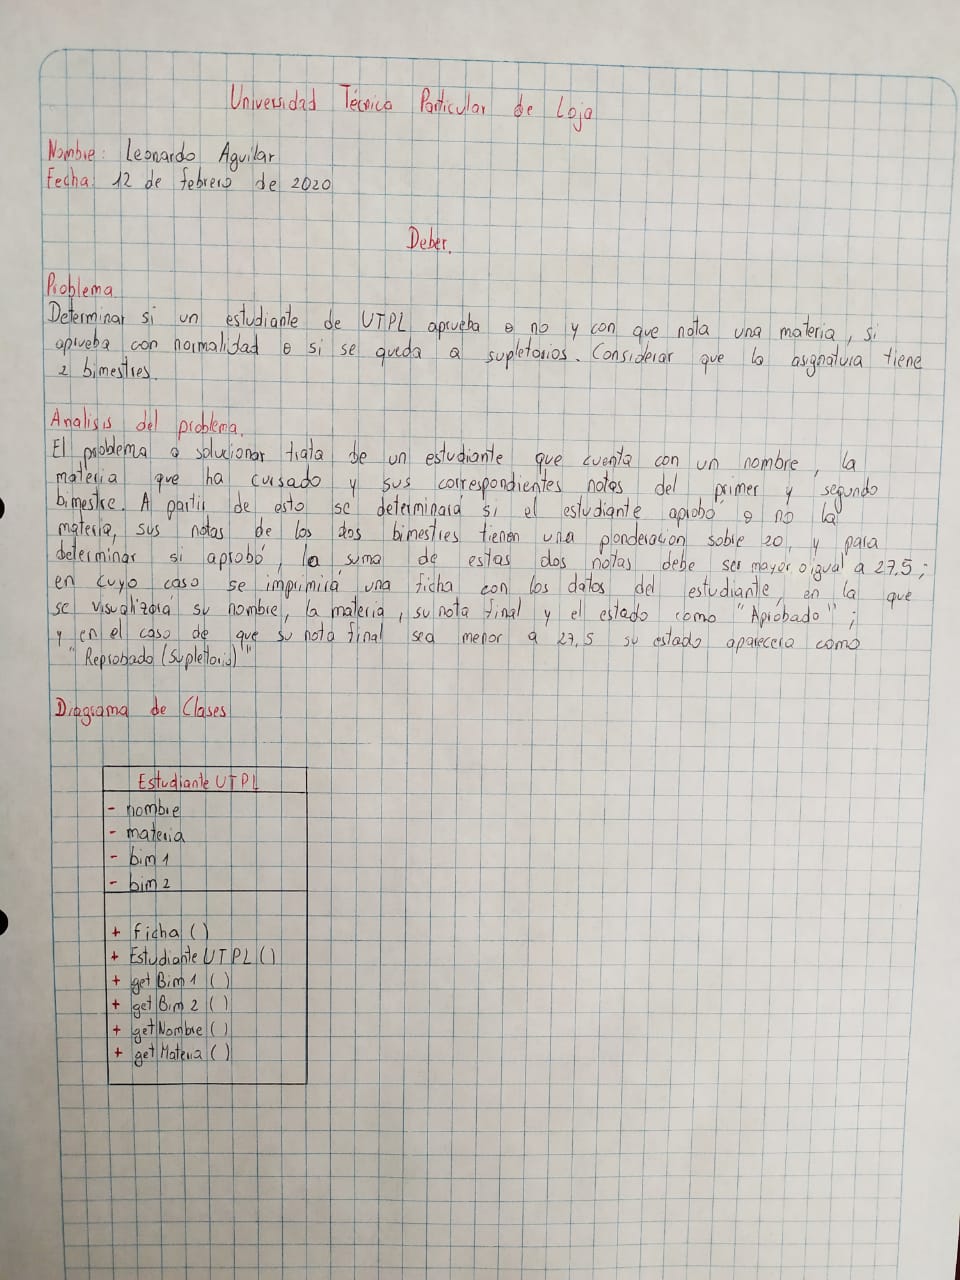 Universidad Técnica Particular de Loja
Nombre: Leonardo Aguilar
Fecha: 12 de febrero de 2020
Deber.
Problema
Determinar si un estudiante de UTPL aprueba o no y con que nota una materia, si
aprueba con normalidad o si se queda a supletorios. Considerar que la asignatura tiene
2 bimestres.
Analisis del problema.
El problema a solucionar trata de un estudiante que cuenta con un nombre, la
materia que ha cursado y sus correspondientes notas del primer y segundo
bimestre. A partir de esto se determinará si el estudiante aprobó o no la
materia, sus notas de los dos bimestres tienen una ponderación sobre 20, y para
determinar si aprobó, la suma de estas dos notas debe ser mayor o igual a 27,5;
en cuyo caso se imprimirá una ficha con los datos del estudiante, en la que
se visualizará su nombre, la materia, su nota final y el estado como "Aprobado";
y en el caso de que su nota final sea menor a 27,5 su estado aparecera como
"Reprobado (Supletorio)"
Diagrama de Clases
Estudiante UTPL
- nombre
- materia
- bim 1
- bim 2
+ ficha ()
+ Estudiante UTPL ()
+ get Bim 1 ()
+ get Bim 2 ()
+ get Nombre ()
+ get Materia ()